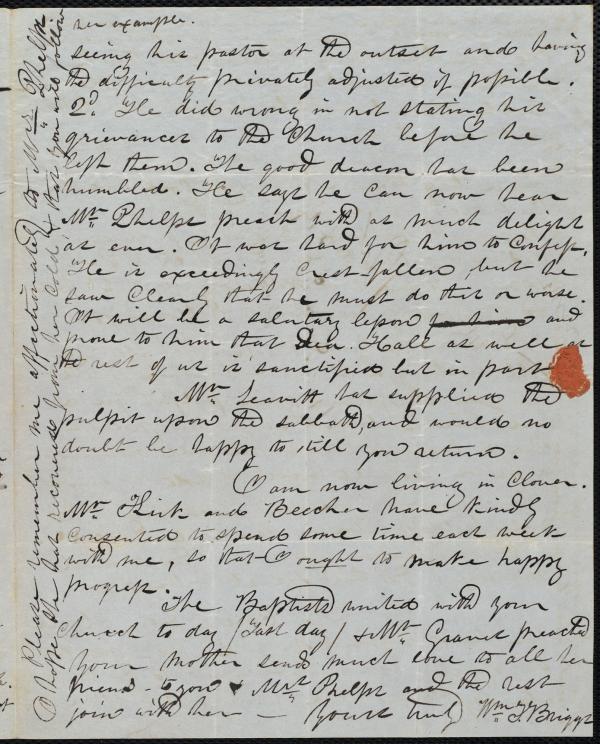 seeing his pastor at the outset and having
the difficulty privately adjusted if possible.
2d. He did wrong in not stating his
grievances to the Church before he
left them. The good deacon has been
humbled. He says he can now hear
Mr. Phelps preach with as much delight
as ever. It was hard for him to confess,
He is exceedingly Crest fallen, but he
saw Clearly that he must do this or worse.
It will be a salutary lesson to him and
prove to him that Dea. Hall as well as
the rest of us is sanctified but in part
Mr. Leavitt has supplied the
pulpit upon the sabbath, and would no
doubt be happy to till you return.
I am now living in Clover.
Mr. Kirk and Beecher have kindly
consented to spend some time each week
with me, so that I ought to make happy
progress.
The Baptists united with your
Church to day / Fast day / & Mr. Graves preached
Your mother sends much love to all her
friends - to you & Mrs. Phelps and the rest
join with her — Yours truly Wm. T. Briggs
Please remember me affectionately to Mrs. Phelps
I hope she has recovered from her cold & that you will follow
her example.